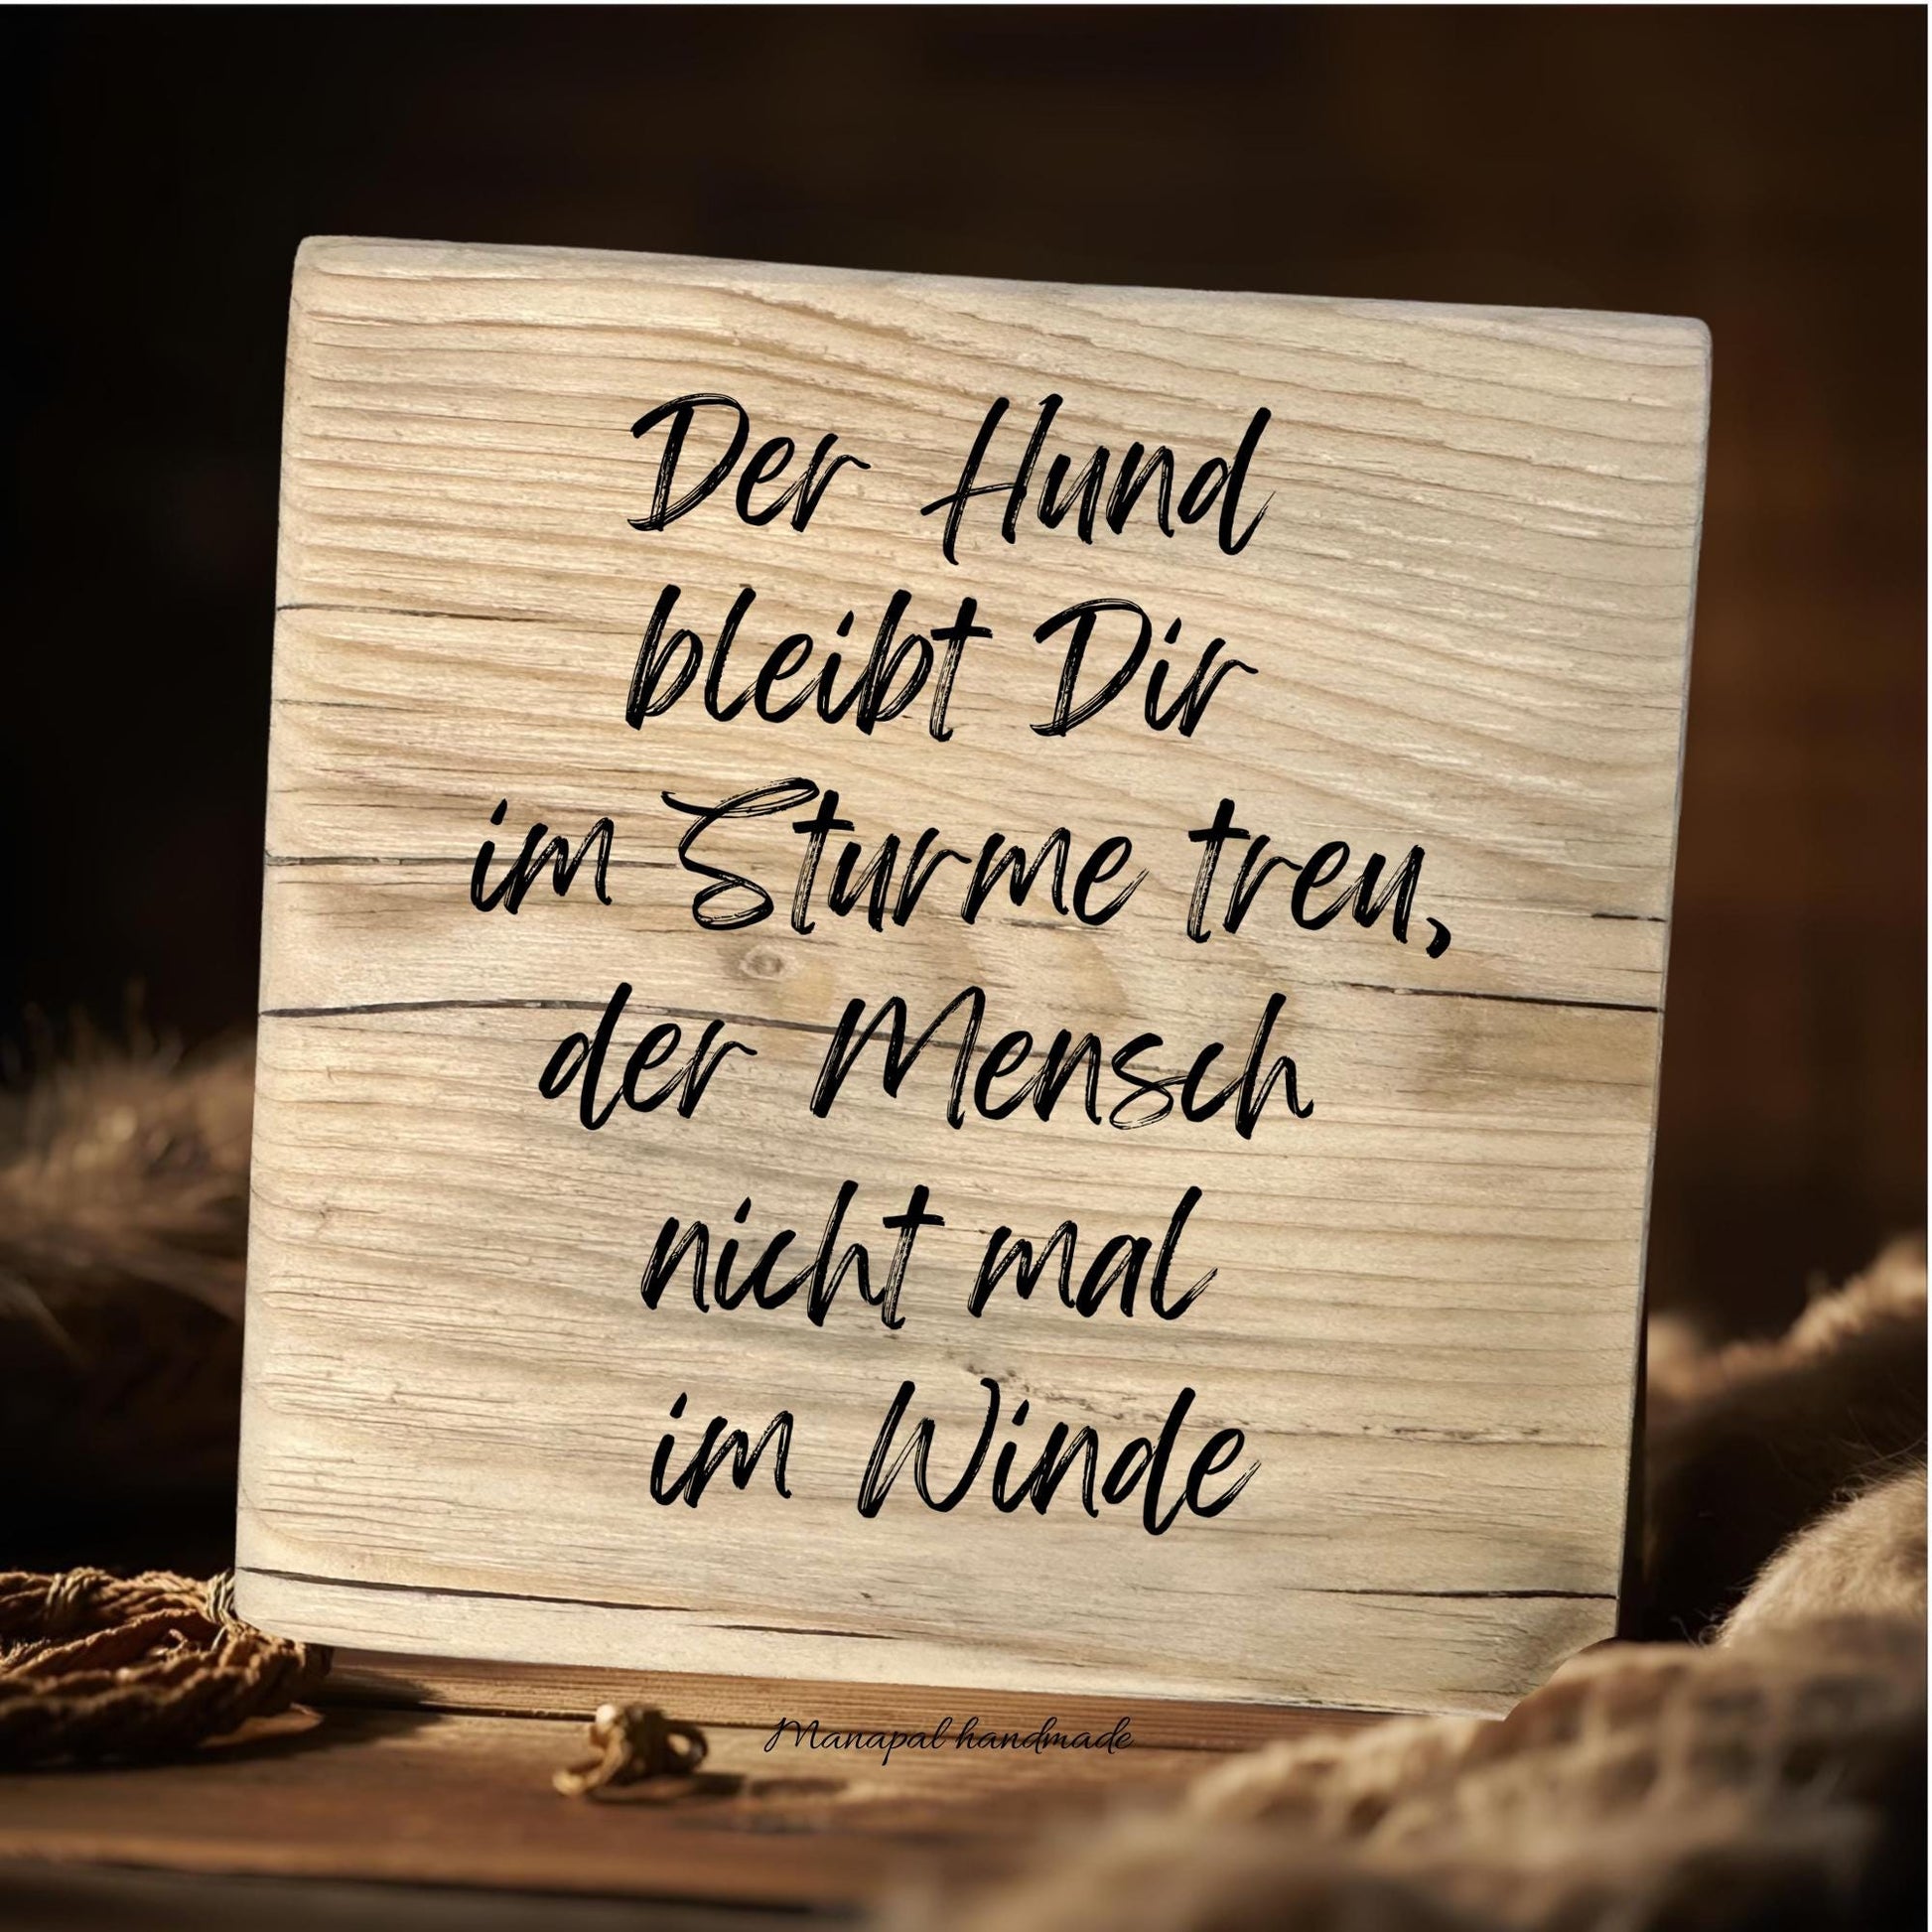 Der Hund
bleibt Dir
im Sturme treu,
der Mensch
nicht mal
im Winde
Manapal handmade